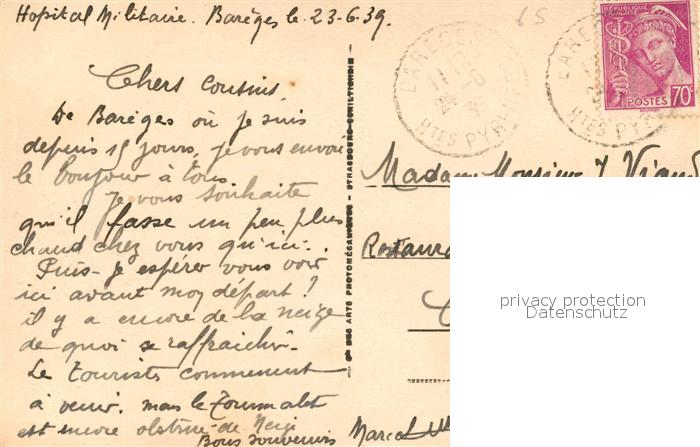 Hopital Militaire. Barèges le 23-6.39.
Chers Cousins,
De Barèges où je suis
depuis 15 jours, je vous envoi
le bonjour à tous.
Je vous souhaite
qu'il fasse un peu plus
chaud chez vous qu'ici.
Puis-je espérer vous voir
ici avant moy départ?
il y a encore de la neige
de quoi se raffraichir.
Le touriste commencent
à venir. mais le Tourmalet
est encore obstrué de Neige
Bons souvenirs Marcel
STRASBOURG-SCHILTIGHEIM
DES ARTS PHOTOMÉCANIQUES
65
BAREGES
24-6
39
HTES PYRÉNÉES
BAREGES
HTES PY
RÉPUBLIQUE FRANÇAISE
POSTES 70c
Madame Monsieur J Viaud
Restaura
privacy protection
Datenschutz